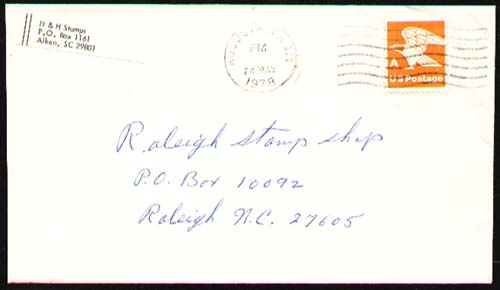 H & H Stamps
P.O. Box 1161
Aiken, SC 29801
PM
24 MAY
1978
A
US Postage
Raleigh Stamp Shop
P.O. Box 10092
Raleigh N.C. 27605